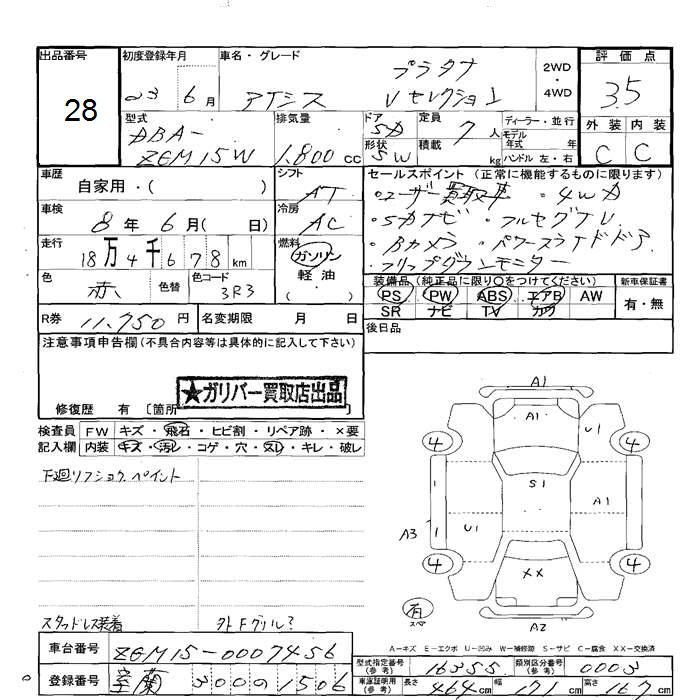 出品番号 初度登録年月 車名・グレード 評価点
28 23 6月 アイシス プラタナ Vセレクション 2WD・4WD 3.5
型式 DBA-ZGM15W 排気量 1.800cc ドア 5D 定員 7人 ディーラー・並行
形状 SW 積載 kg モデル年式 年 ハンドル 左・右
外装 内装
C C
車歴 自家用・( ) シフト AT セールスポイント (正常に機能するものに限ります)
・ユーザー買取車 ・4WD
車検 8年6月( 日) 冷房 AC ・SDナビ ・フルセグTV
走行 18万4千678km 燃料 ガソリン 軽油 ( ) ・Bカメラ ・パワースライドドア
・フリップダウンモニター
色 赤 色替 色コード 3R3 装備品 (純正品に限り○をつけてください) 新車保証書
PS PW ABS エアB AW 有・無
SR ナビ TV カワ
R券 11.750円 名変期限 月 日 後日品
注意事項申告欄 (不具合内容等は具体的に記入して下さい)
★ガリバー買取店出品
修復歴 有 〔箇所
検査員 FW キズ・飛石・ヒビ割・リペア跡・×要
記入欄 内装 キズ・汚レ・コゲ・穴・スレ・キレ・破レ
下廻リフショク、ペイント
A1
A1 U1
4 4
1 S1
A1
A3 1 U1
4 4
XX
有 スペ
A2
スタッドレス装着 外 Fグリル?
A-キズ E-エクボ U-凹み W-補修跡 S-サビ C-腐食 XX-交換済
車台番号 ZGM15-0007456
型式指定番号(参考) 16355 類別区分番号(参考) 0003
登録番号 室蘭 300 ס 1506
車庫証明用(参考) 長さ 464cm 幅 171cm 高さ 167cm